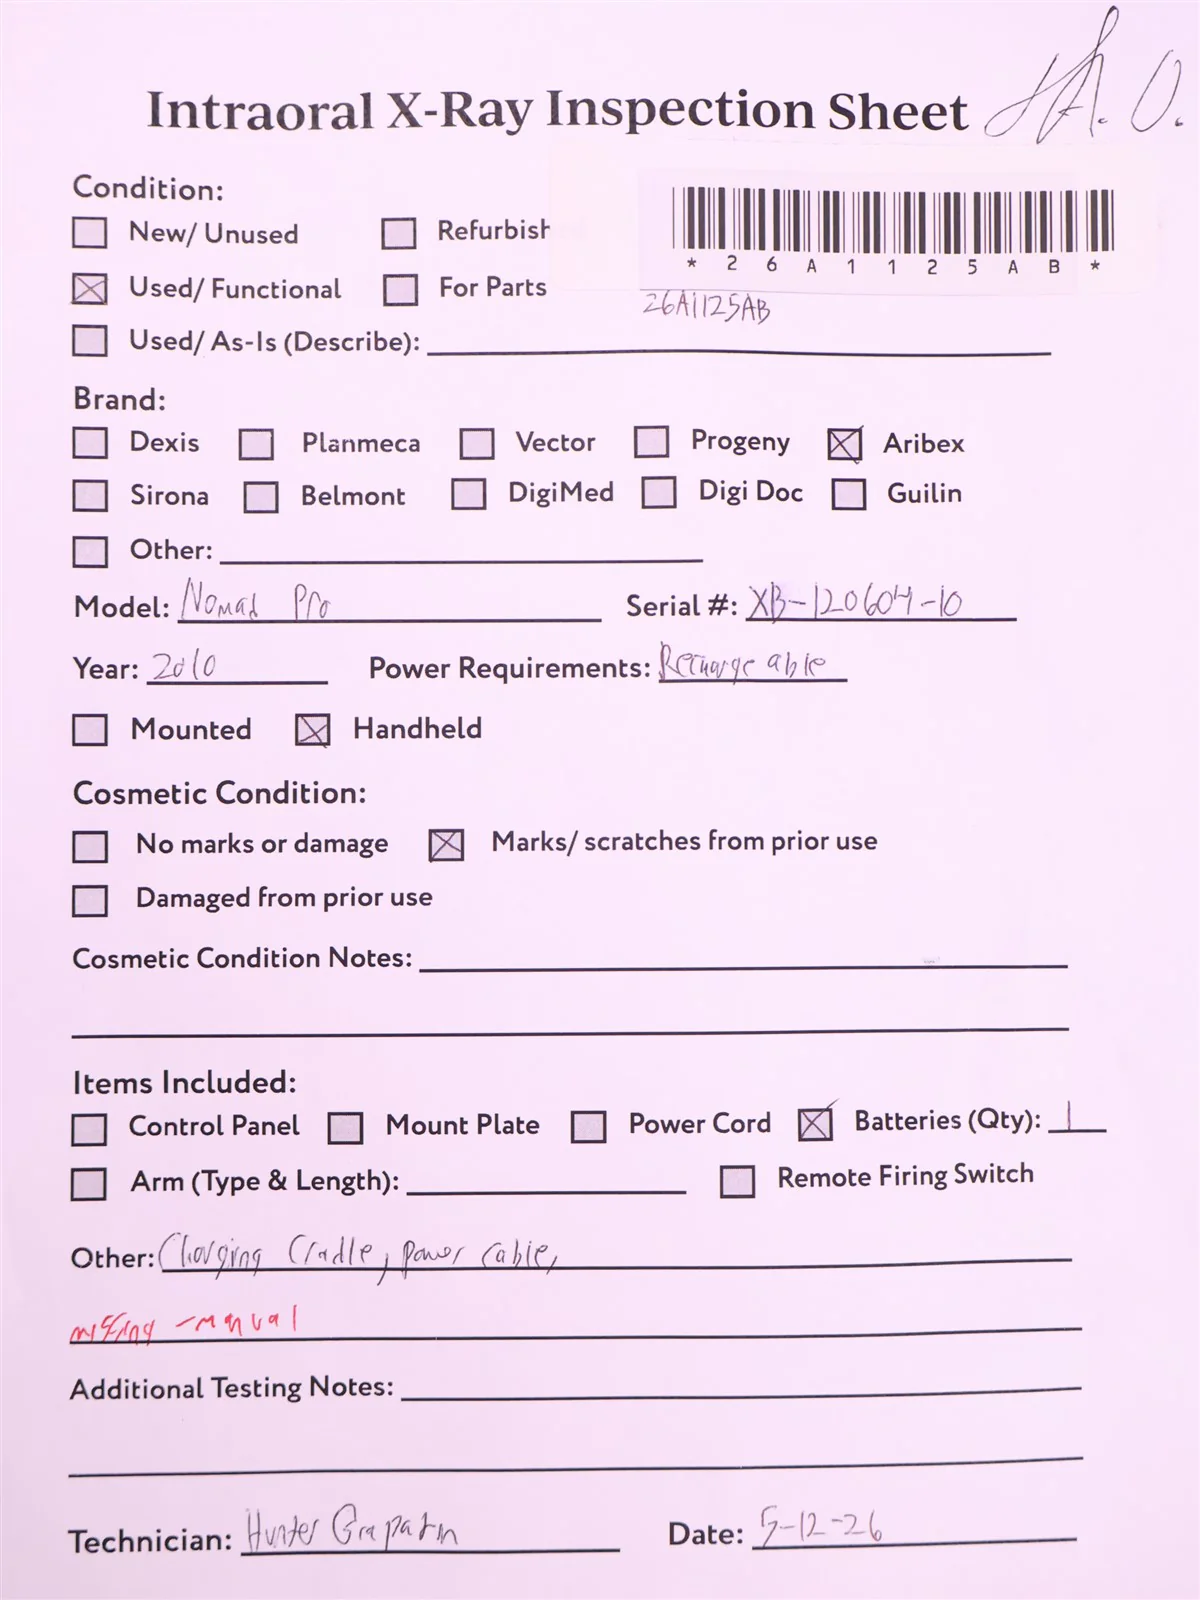 Intraoral X-Ray Inspection Sheet
A. O.
Condition:
New/ Unused Refurbish
*26A1125AB*
Used/ Functional For Parts
26A1125AB
Used/ As-Is (Describe):
Brand:
Dexis Planmeca Vector Progeny Aribex
Sirona Belmont DigiMed Digi Doc Guilin
Other:
Model: Nomad Pro Serial #: XB-120604-10
Year: 2010 Power Requirements: Rechargeable
Mounted Handheld
Cosmetic Condition:
No marks or damage Marks/ scratches from prior use
Damaged from prior use
Cosmetic Condition Notes:
Items Included:
Control Panel Mount Plate Power Cord Batteries (Qty): 1
Arm (Type & Length): Remote Firing Switch
Other: Charging Cradle, power cable,
missing - manual
Additional Testing Notes:
Technician: Hunter Date: 5-12-26